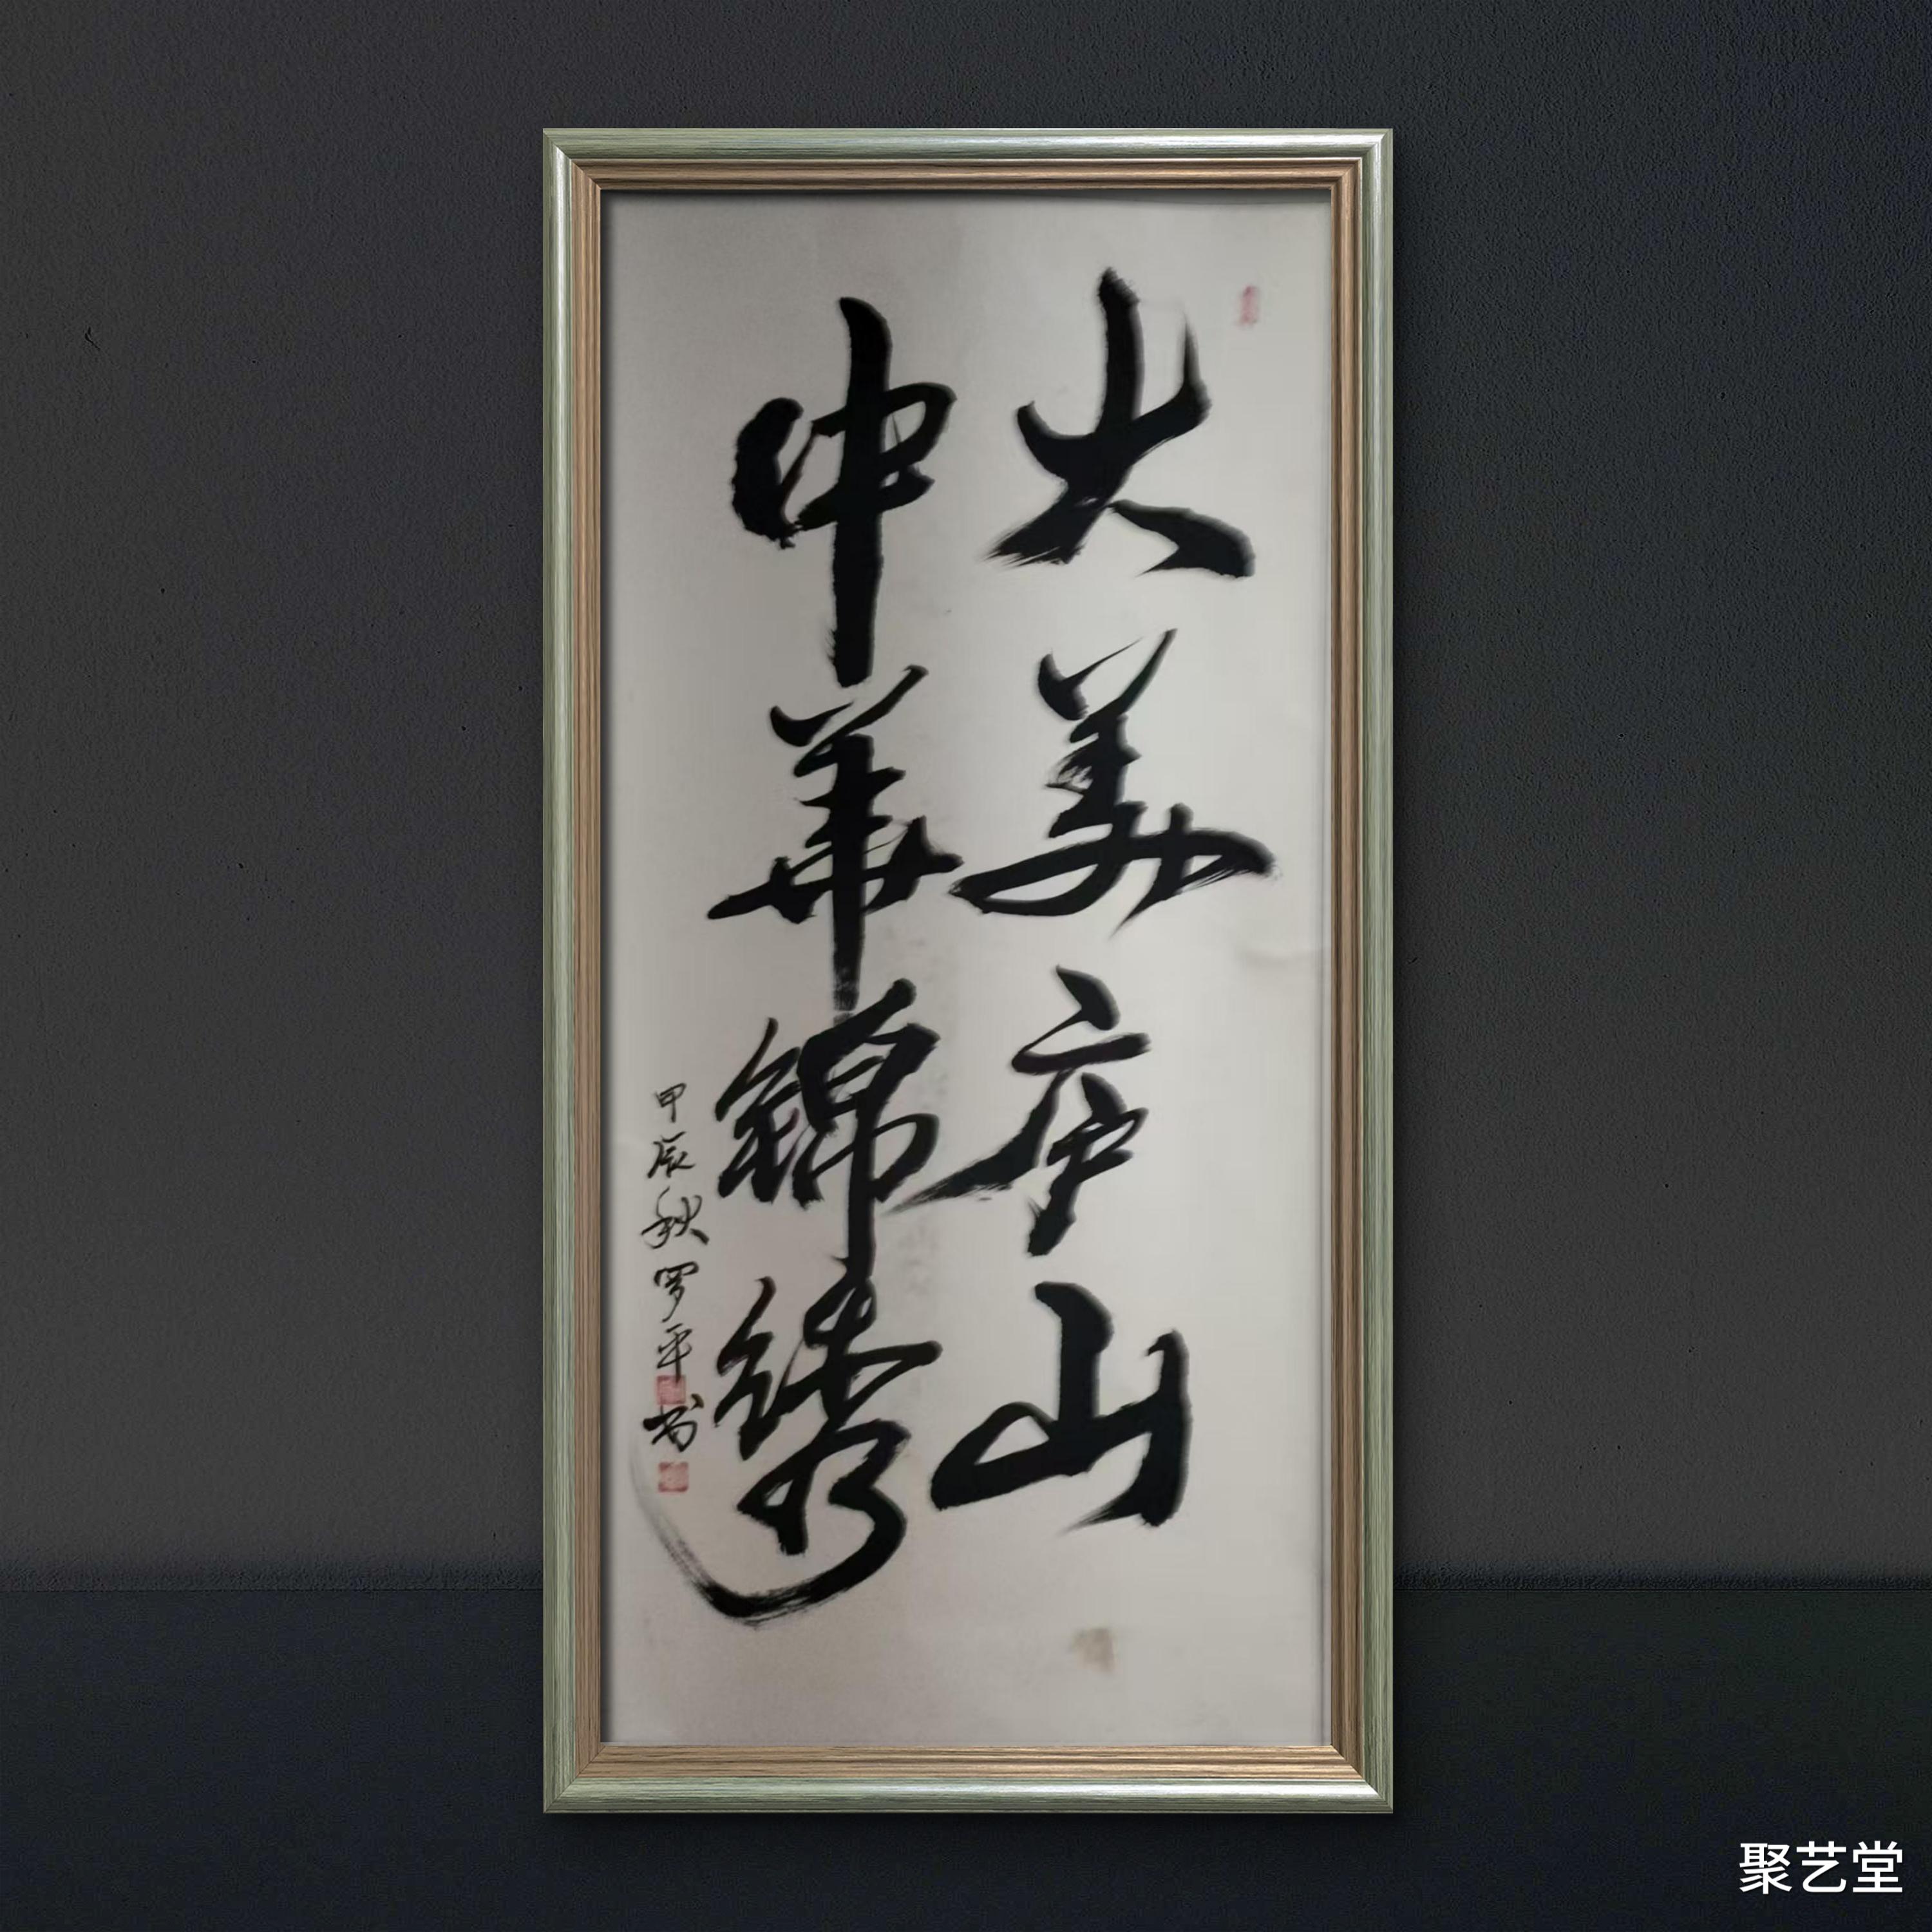 大美庐山
中華錦綉
甲辰秋罗平书
聚艺堂